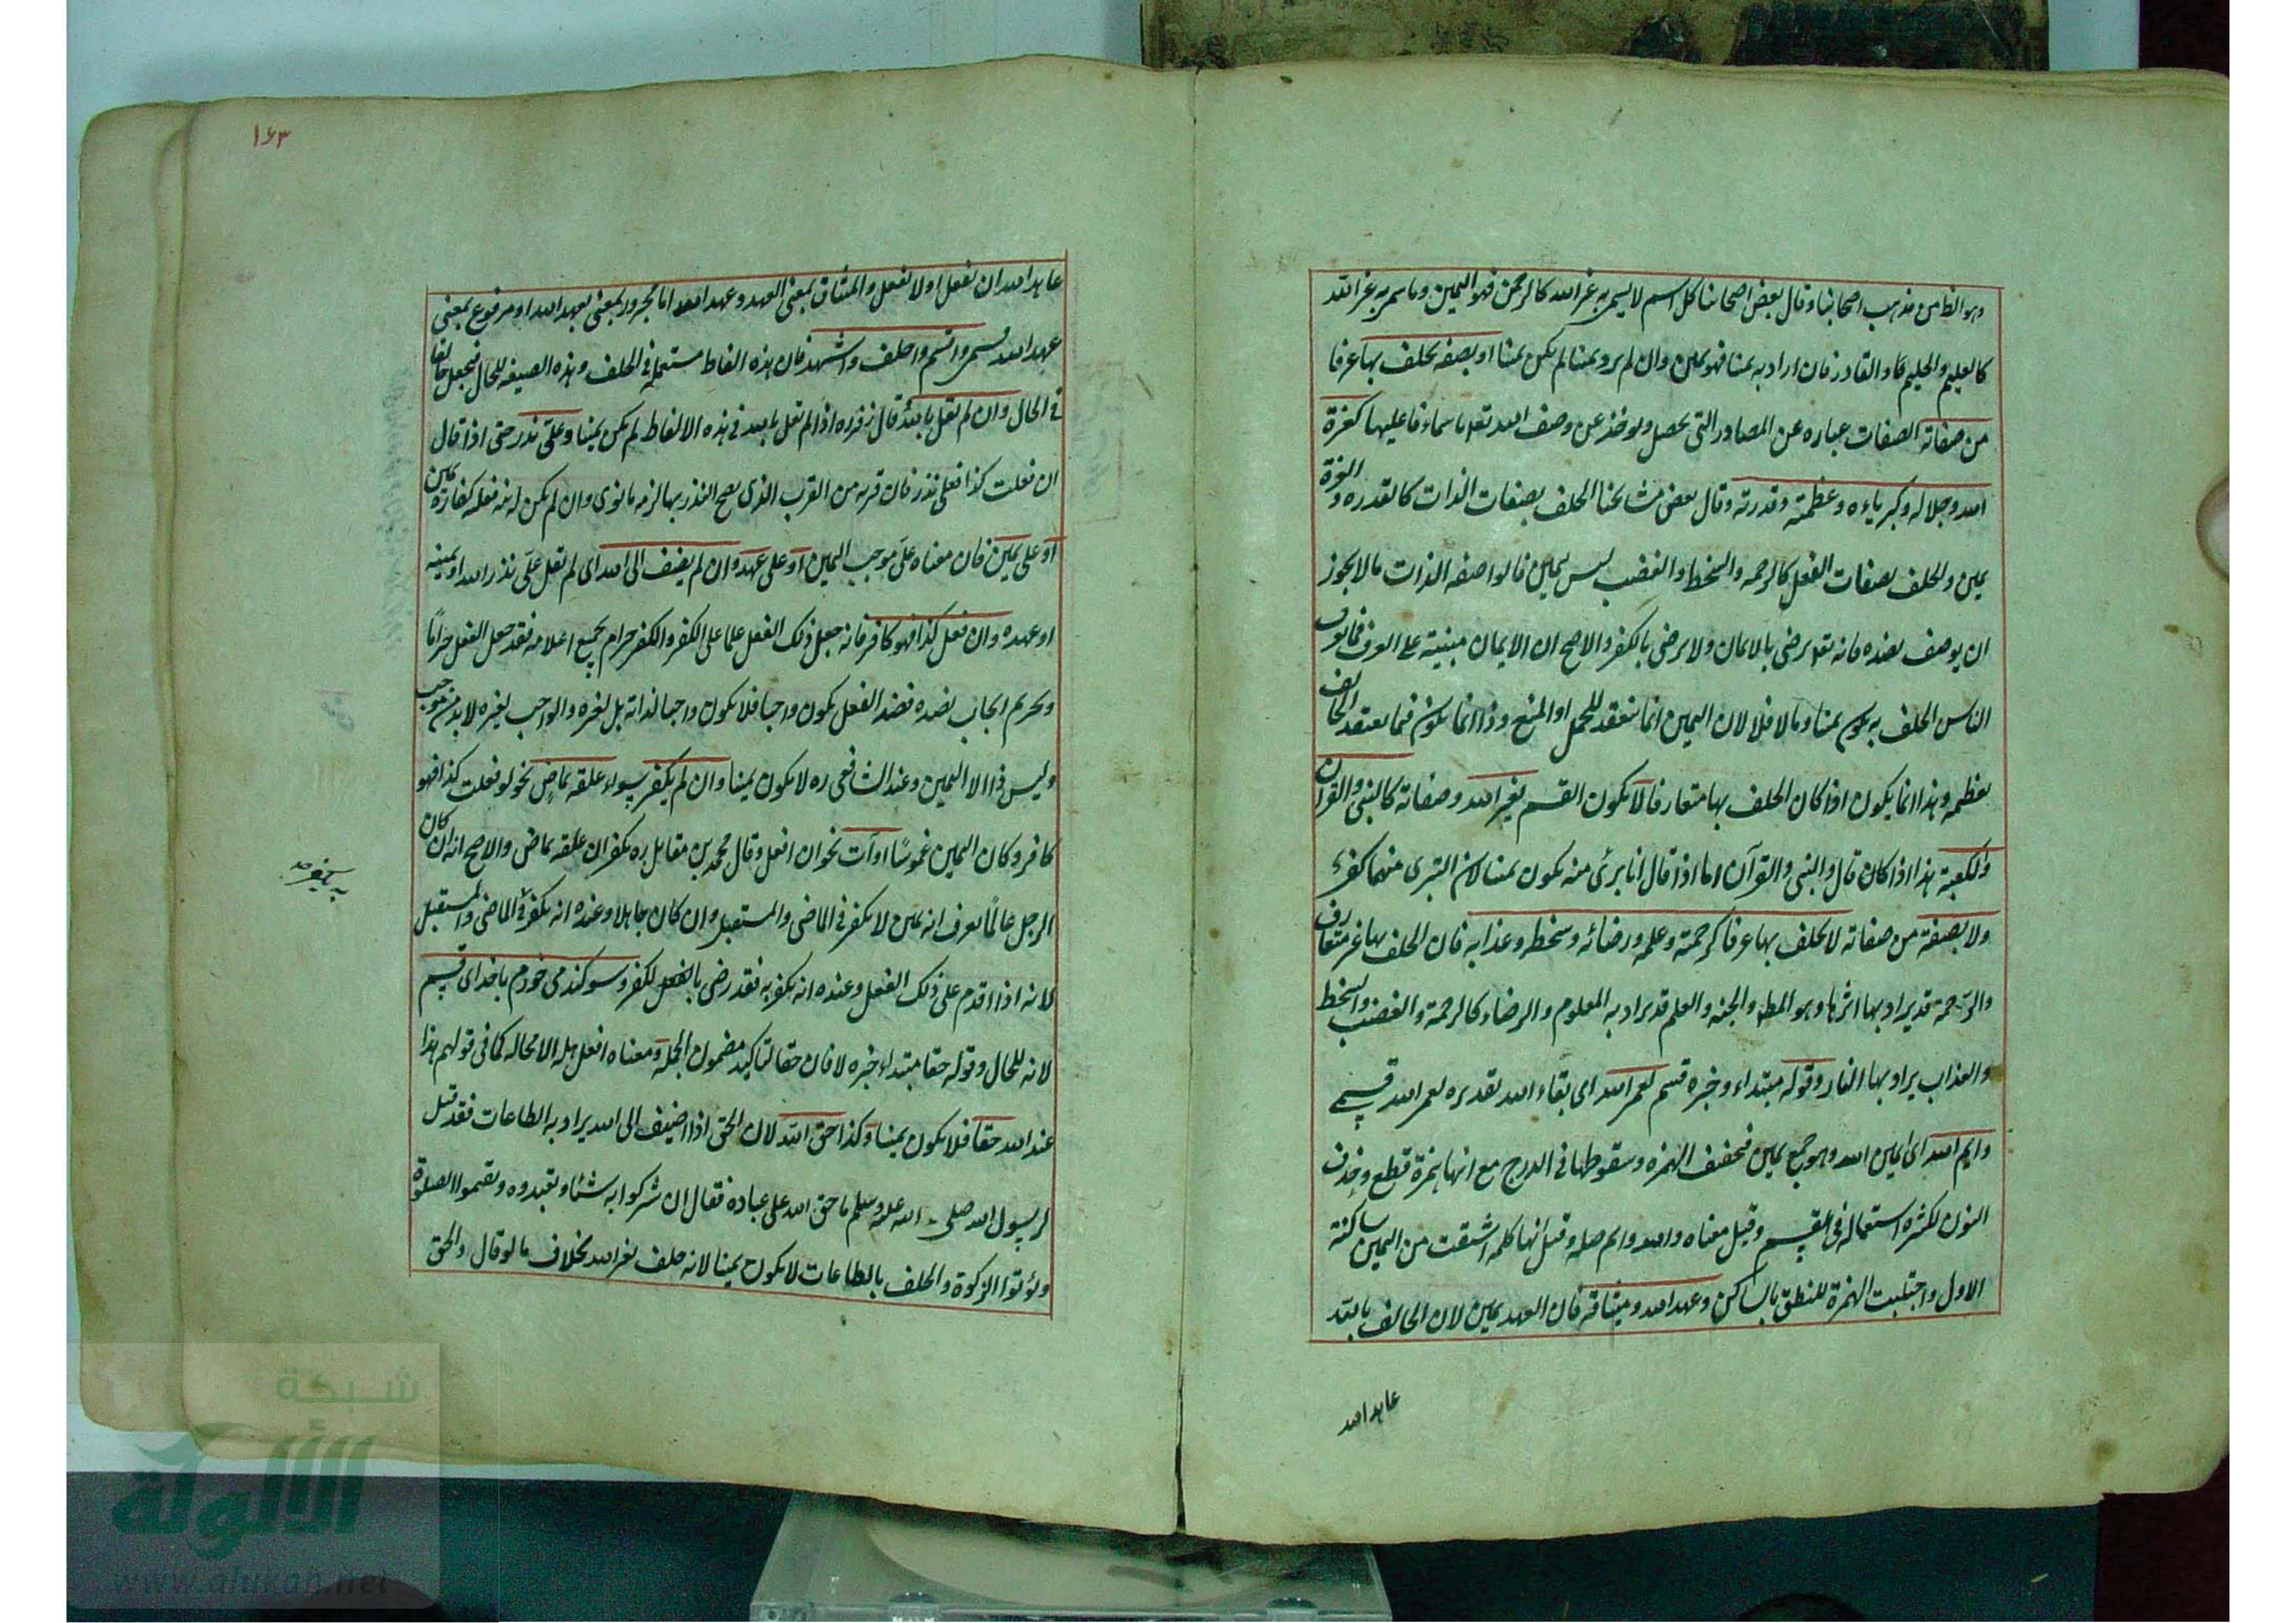 وهو الظ من مذهب اصحابنا وقال بعض اصحابنا كل اسم لا يسمى به غير الله كالرحمن فهو اليمين وما سمى به غير الله
كالعليم والحليم والقادر فان اراد به يمينا فهو يمين وان لم يرد يمينا لم يكن يمينا او بصفة يحلف بها عرفا
من صفاته الصفات عباره عن المصادر التى يحصل ويوخذ عن وصف الله تعالى باسماء فاعليها كعزة
الله وجلاله وكبرياءه وعظمته وقدرته وقال بعض مشايخنا الحلف بصفات الذات كالقدره والعزة
يمين والحلف بصفات الفعل كالرحمه والسخط والغضب ليس بيمين قالوا صفه الذات ما لا يجوز
ان يوصف بضده فانه تعالى يرضى بالايمان ولا يرضى بالكفر والاصح ان الايمان مبنية على العرف فما يعرف
الناس الحلف به يكون يمينا وما لا فلا لان اليمين انما تنعقد للحمل او المنع وذا انما يكون فيما يعتقد الحالف
بعظمه وهذا انما يكون اذا كان الحلف بها متعارفا لا يكون القسم بغير الله وصفاته كالنبى والقران
والكعبة هذا اذا كان قال والنبى والقرآن اما اذا قال انا برئ منه يكون يمينا لان التبرى منهما كفر
ولا بصفة من صفاته لا يحلف بها عرفا كرحمته وعلمه ورضائه وسخطه وعذابه فان الحلف بها غير متعارف
والرحمة قد يراد بها اثرها وهو المطر والجنه والعلم قد يراد به المعلوم والرضاء كالرحمة والغضب والسخط
والعذاب يراد بها النار وقوله مبتداء وخبره قسم لعمر الله اى بقاء الله تقديره لعمر الله قسمى
وايم الله اى ايمين الله وهو جمع يمين فتخفيف الهمزه وسقوطها فى الدرج مع انها همزة قطع وحذف
النون لكثره استعماله فى القسم وقيل معناه والله وايم صله وقيل انها كلمه اشتقت من اليمين ساكنة
الاول واجتلبت الهمزة للنطق بالساكن وعهد الله وميثاقه فان العهد يمين لان الحالف بالله
عاهد الله
١٦٣
عاهد الله ان يفعل او لا يفعل والميثاق بمعنى العهد وعهد الله اما مجرور بمعنى بعهد الله او مرفوع بمعنى
عهد الله قسمى واقسم واحلف واشهد فان هذه الفاظ مستعملة فى الحلف وهذه الصيغه للحال فيجعل حالفا
فى الحال وان لم يقل بالله قال زفر ره اذا لم يقل بالله فى هذه الالفاظ لم يكن يمينا وعلىّ نذر حتى اذا قال
ان فعلت كذا فعلى نذر فان قربه من القرب الذى يصح النذر بها لزمه ما نوى وان لم يكن له نية فعليه كفارة يمين
او على يمين فان معناه علىّ موجب اليمين او على عهد وان لم يضف الى الله اى لم يقل علىّ نذر الله او يمينه
او عهده وان فعل كذا فهو كافر فانه جعل ذلك الفعل علما على الكفر والكفر حرام بجميع اعلامه فقد جعل الفعل حرامًا
وتحريم ايجاب لضده فضد الفعل يكون واجبا فلا يكون واجبا لذاته بل لغيره والواجب لغيره لا بد من موجب
وليس ذا الا اليمين وعند الشافعى ره لا يكون يمينا وان لم يكفر سواء علقه بماض نحو لو فعلت كذا فهو
كافر وكان اليمين غموسًا او آت نحو ان افعل وقال محمد بن مقاتل ره يكفر ان علقه بماض والاصح انه ان كان
الرجل عالمًا يعرف انه يمين لا يكفر فى الماضى والمستقبل وان كان جاهلا وعنده انه يكفر فى الماضى والمستقبل
يكفر صح به
لانه اذا اقدم على ذلك الفعل وعنده انه يكفر به فقد رضى بالفعل لكفر وسوكند مى خورم بخداى قسم
لانه للحال وقوله حقا مبتداء خبره لا فان حقا لتاكيد مضمون الجملة ومعناه افعل هذا لا محاله كما فى قولهم هذا
عند الله حقا فلا يكون يمينا وكذا حق الله لان الحق اذا اضيف الى الله يراد به الطاعات فقد قيل
لرسول الله صلى الله عليه وسلم ما حق الله على عباده فقال ان لا يشركوا به شئا ويعبدوه ويقيموا الصلوة
ويؤتوا الزكوة والحلف بالطاعات لا يكون يمينا لانه حلف بغير الله بخلاف ما لو قال والحق
شبكة
الألوكة
www.alukah.net